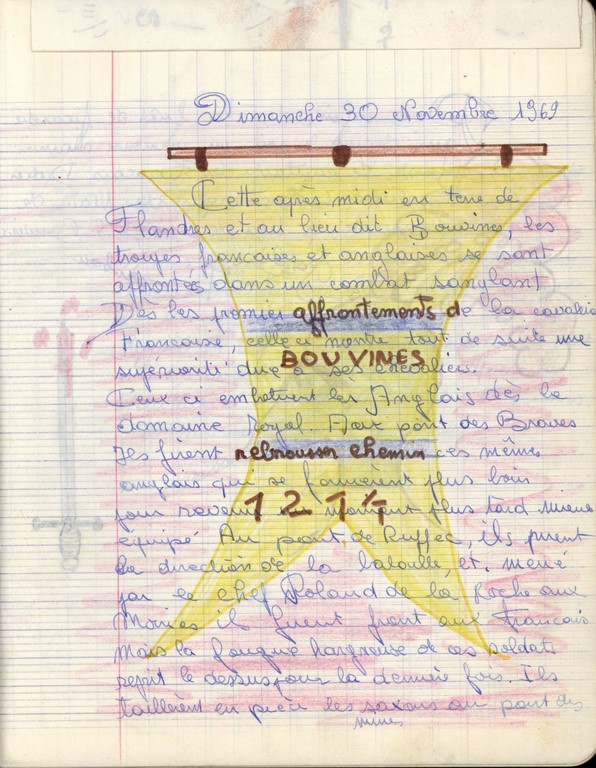 Dimanche 30 Novembre 1969
Cette après midi en terre de
Flandres et au lieu dit Bouvines, les
troupes francaises et anglaises se sont
affrontés dans un combat sanglant
Dès les premier affrontements de la cavalerie
Francaise, celle ci montre tout de suite une
supériorité due à ses chevaliers.
BOUVINES
Ceux ci embetèrent les Anglais dès le
domaine Royal. Aux pont des Braves
Ils firent rebrousser chemin ces même
anglais qui se formèrent plus loin
pour revenir un moment plus tard mieux
1214
équipé Au pont de Ruffec, ils prirent
la direction de la, et mené
par le chef Roland de la Roche aux
Moines il firent front aux Francais
Mais la fougue hargneuse de ces soldats
reprit le dessus pour la dernière fois. Ils
taillèrent en pièce les saxons au pont des
mines